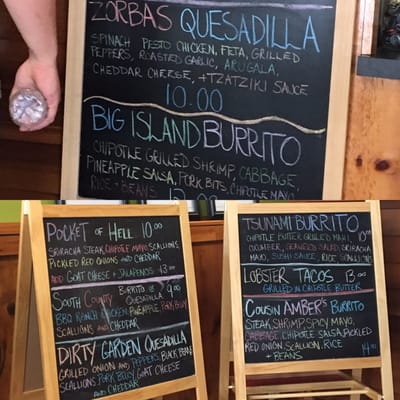 ZORBAS QUESADILLA
SPINACH PESTO CHICKEN, FETA, GRILLED
PEPPERS, ROASTED GARLIC, ARUGALA,
CHEDDAR CHEESE, + TZATZIKI SAUCE
10.00
BIG ISLAND BURRITO
CHIPOTLE GRILLED SHRIMP, CABBAGE,
PINEAPPLE SALSA, PORK BITS, CHIPOTLE MAYO
RICE + BEANS
POCKET OF HELL 10.00
SRIRACHA STEAK, CHIPOTLE MAYO, SCALLIONS,
PICKLED RED ONIONS AND CHEDDAR
ADD GOAT CHEESE + JALAPENOS 13.00
SOUTH COUNTY BURRITO OR 9.00
QUESADILLA
BBQ RANCH CHICKEN PINEAPPLE PORK BELLY
SCALLIONS AND CHEDDAR
DIRTY GARDEN QUESADILLA
GRILLED ONION AND PEPPERS, BLACK BEANS
SCALLIONS, PORK BELLY, GOAT CHEESE
AND CHEDDAR
TSUNAMI BURRITO
CHIPOTLE BUTTER GRILLED MAHI, 10.00
CUCUMBER, SEAWEED SALAD, SRIRACHA
MAYO, SUSHI SAUCE, RICE, SCALLIONS
LOBSTER TACOS 13.00
GRILLED IN CHIPOTLE BUTTER
COUSIN AMBER'S BURRITO
STEAK, SHRIMP, SPICY MAYO,
CABBAGE, CHIPOTLE SALSA, PICKLED
RED ONION, SCALLION, RICE
+ BEANS 14.00